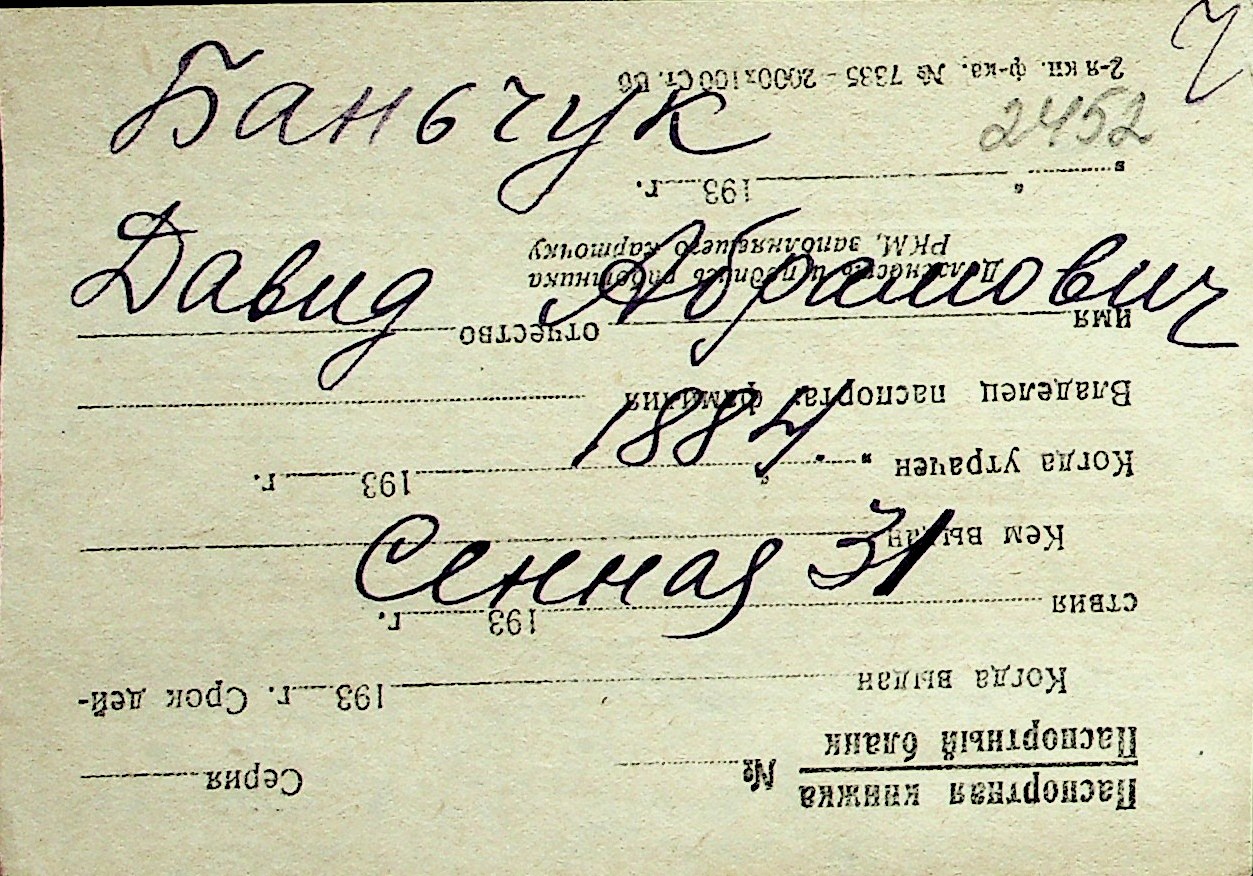 Баньчук
2452
Давид Абрамович
1884
Сенная 31
Паспортная книжка № Серия
Паспортный бланк
Когда выдан 193 г. Срок дей-
ствия 193 г.
Кем выдан
Когда утрачен " " 193 г.
Владелец паспорта: фамилия
имя отчество
Должность и подпись работника
РКМ, заполнявшего карточку
" " 193 г.
2-я кн. ф-ка. № 7335 - 2000х100 Ст.